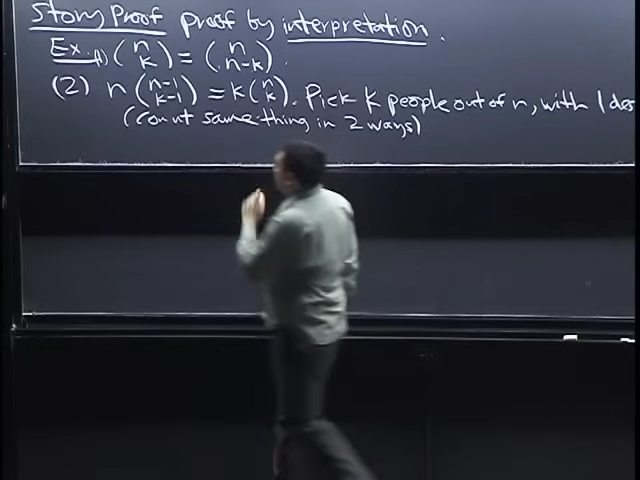 Story Proof proof by interpretation.
Ex. (1) (n k) = (n n-k).
(2) n (n-1 k-1) = k (n k). Pick k people out of n, with 1 des
(count same thing in 2 ways)